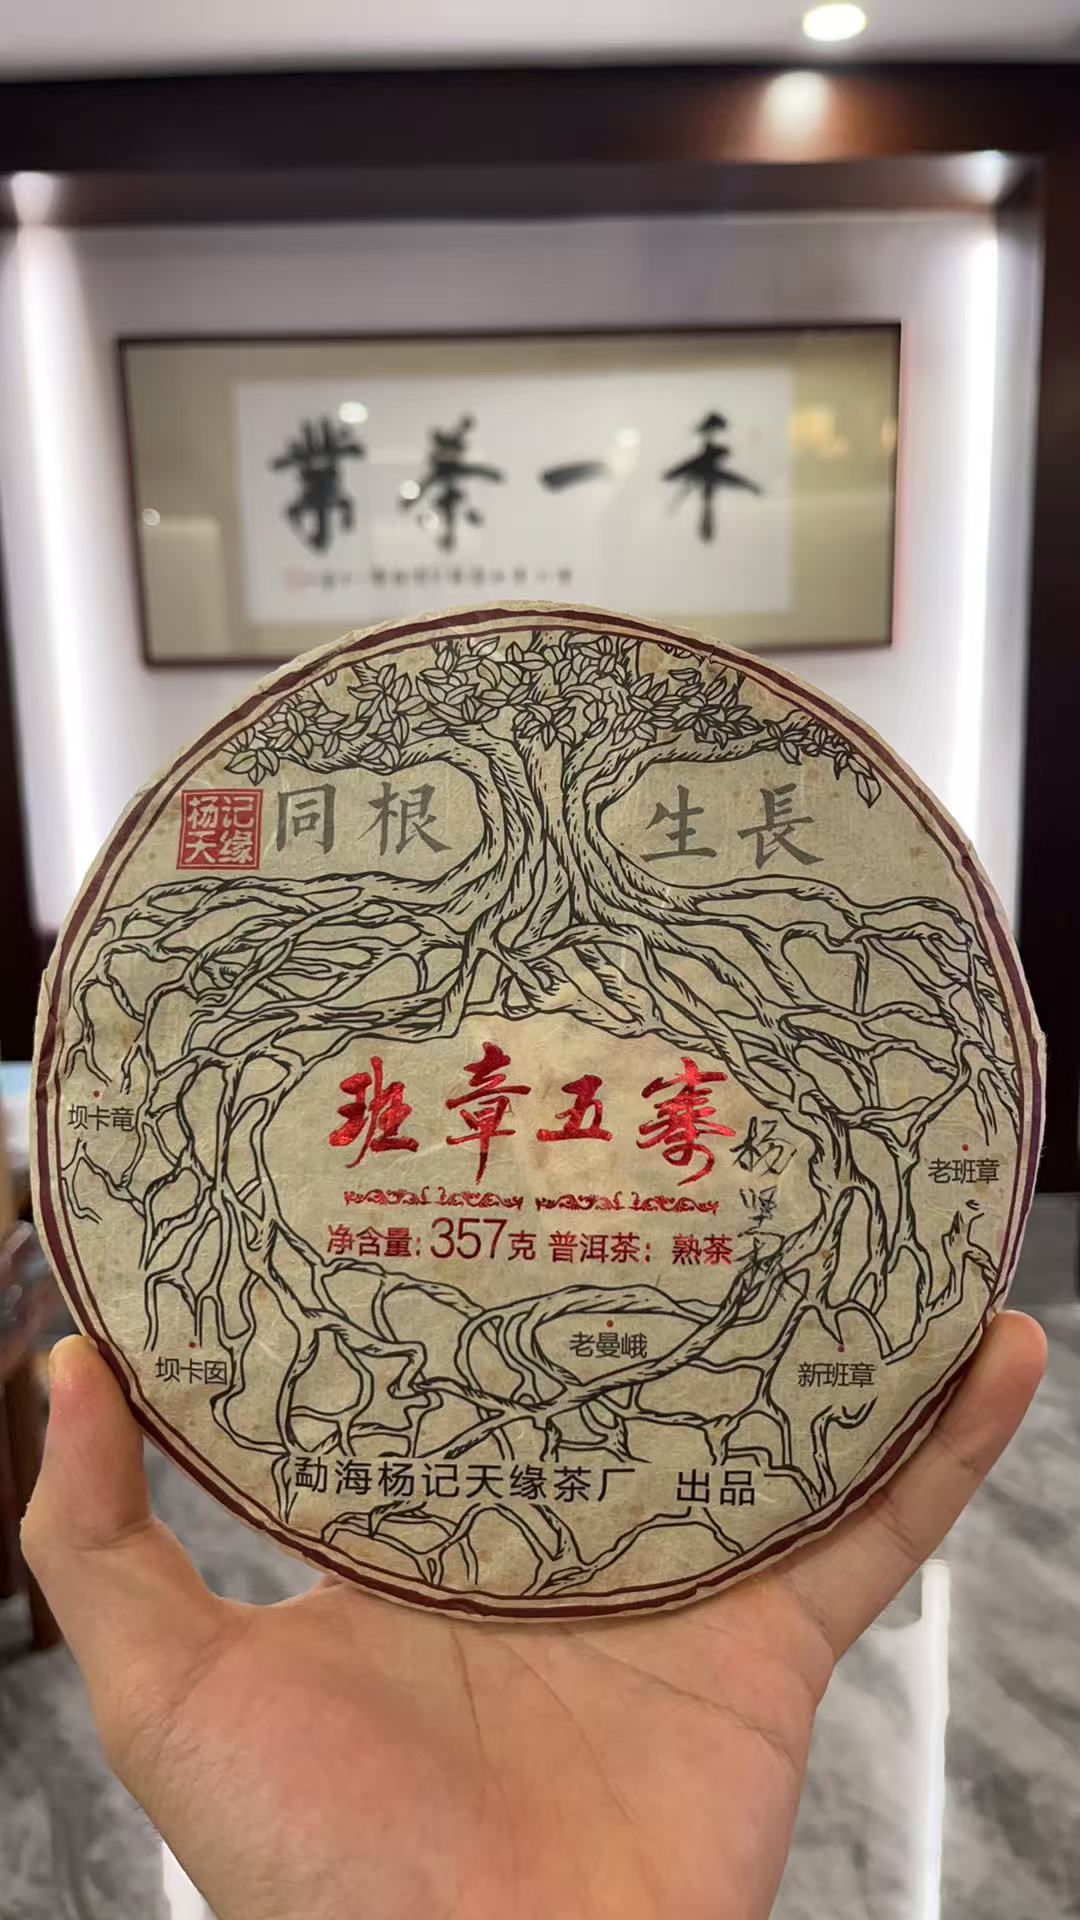 禾一茶業
杨记
天缘
同根
生長
班章五寨
净含量:357克 普洱茶:熟茶
坝卡竜
老班章
老曼峨
坝卡囡
新班章
勐海杨记天缘茶厂 出品